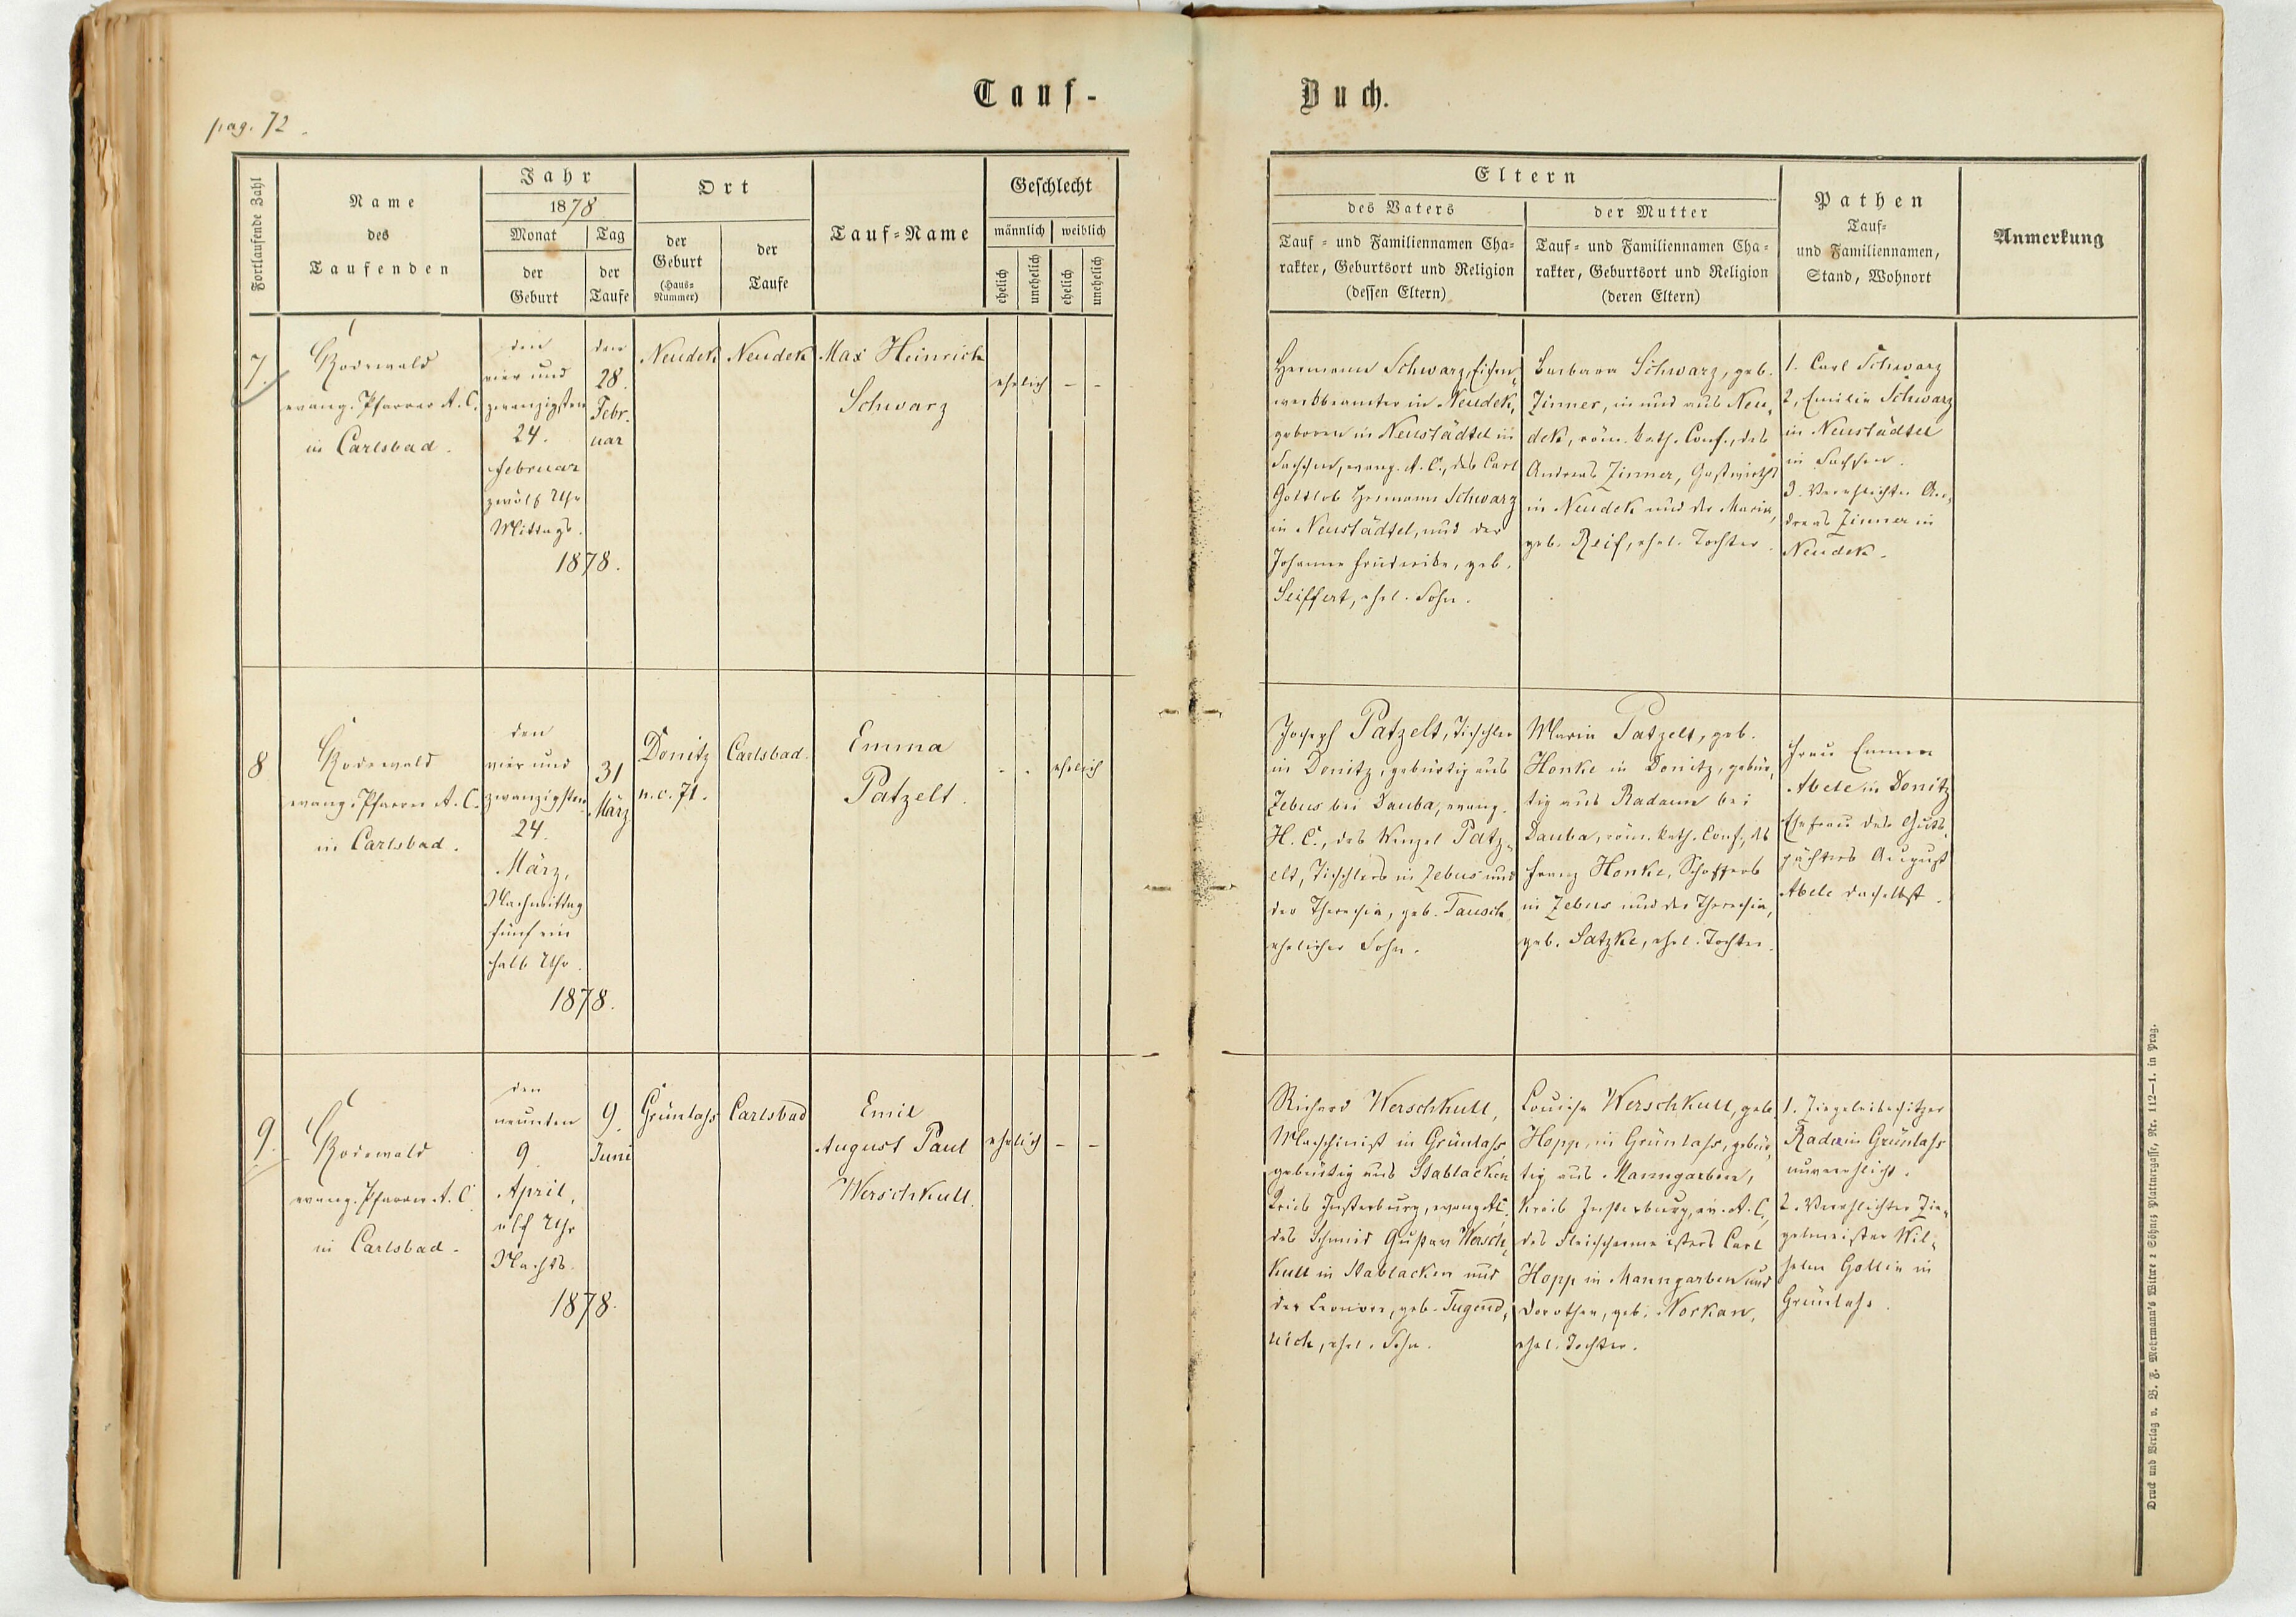 Tauf-
Buch.
pag. 72.
Fortlaufende Zahl
Name
des
Taufenden
Jahr
1878
Monat
der
Geburt
Tag
der
Taufe
Ort
der
Geburt
(Haus-
Nummer)
der
Taufe
Tauf-Name
Geschlecht
männlich
weiblich
ehelich
unehelich
ehelich
unehelich
Eltern
des Vaters
Tauf- und Familiennamen Cha-
rakter, Geburtsort und Religion
(dessen Eltern)
der Mutter
Tauf- und Familiennamen Cha-
rakter, Geburtsort und Religion
(deren Eltern)
Pathen
Tauf-
und Familiennamen,
Stand, Wohnort
Anmerkung
7.
Rodewald
evang. Pfarrer A. C.
in Carlsbad.
den
vier und
zwanzigsten
24.
Februar
zwölf Uhr
Mittags.
1878.
den
28.
Febr-
uar
Neudek
Neudek
Max Heinrich
Schwarz
ehelich
-
-
Hermann Schwarz, Eisen-
werkbeamter in Neudek,
geboren in Neustädtel in
Sachsen, evang. A. C., des Carl
Gottlob Hermann Schwarz
in Neustädtel, und der
Johanne Friederike, geb.
Seiffert, ehel. Sohn.
Barbara Schwarz, geb.
Zinner, in und aus Neu-
dek, röm. kath. Conf., des
Andreas Zinner, Gastwirths
in Neudek und der Maria,
geb. Reif, ehel. Tochter.
1. Carl Schwarz
2. Emilie Schwarz
in Neustädtel
in Sachsen.
3. Verehlichter An-
dreas Zinner in
Neudek.
8
Rodewald
evang. Pfarrer A. C.
in Carlsbad.
den
vier und
zwanzigsten
24.
März,
Nachmittag
fünf ein
halb Uhr.
1878.
31
März
Donitz
n. c. 71.
Carlsbad.
Emma
Patzelt.
-
-
ehelich
Joseph Patzelt, Tischler
in Donitz, gebürtig aus
Zebus bei Dauba, evang.
H. C., des Wenzel Patz-
elt, Tischlers in Zebus und
der Theresia, geb. Tausch,
ehelicher Sohn.
Maria Patzelt, geb.
Honke in Donitz, gebür-
tig aus Radaun bei
Dauba, röm. kath. Conf., des
Franz Honke, Schaffers
in Zebus und der Theresia,
geb. Satzke, ehel. Tochter.
Frau Emma
Abele in Donitz
Ehefrau des Guts-
pächters August
Abele daselbst.
9.
Rodewald
evang. Pfarrer A. C.
in Carlsbad.
den
neunten
9.
April,
elf Uhr
Nachts.
1878.
9.
Juni
Grünlass
Carlsbad
Emil
August Paul
Werschkull.
ehelich
-
-
Richard Werschkull,
Maschinist in Grünlass,
gebürtig aus Stablacken
Kreis Insterburg, evang. A. C.
des Schmied Gustav Wersch-
kull in Stablacken und
der Leonore, geb. Tugend-
reich, ehel. Sohn.
Louise Werschkull, geb.
Hopp, in Grünlass, gebür-
tig aus Manngarben,
Kreis Insterburg, ev. A. C.,
des Fleischermeisters Carl
Hopp in Manngarben und
Dorothea, geb. Norkan,
ehel. Tochter.
1. Ziegeleibesitzer
Rada in Grünlass
unverehlicht.
2. Verehlichter Zie-
gelmeister Wil-
helm Gollin in
Grünlass.
Druck und Verlag v. B. F. Mehrmann's Witwe & Söhne; Plattnergasse, Nr. 112—1. in Prag.